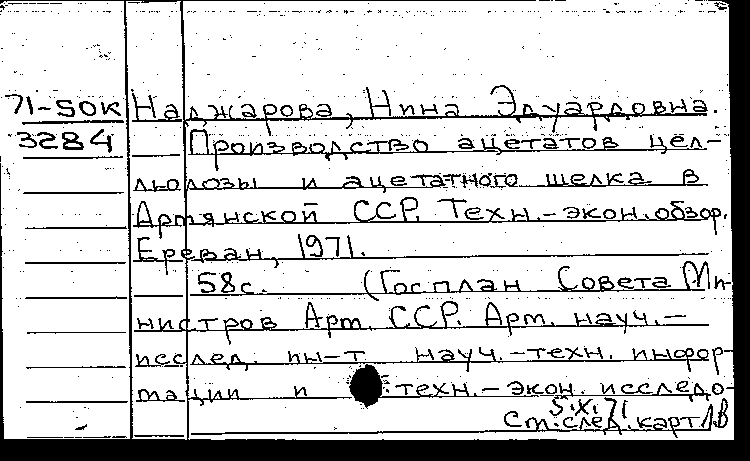 71-50к Наджарова, Нина Эдуардовна.
3284 Производство ацетатов цел-
люлозы и ацетатного шелка в
Армянской ССР. Техн.-экон. обзор.
Ереван, 1971.
58с. (Госплан Совета Ми-
нистров Арм. ССР. Арм. науч.-
исслед. ин-т науч.-техн. инфор-
мации и техн.-экон. исследо-
5.X.71
См. след. карт ЛВ